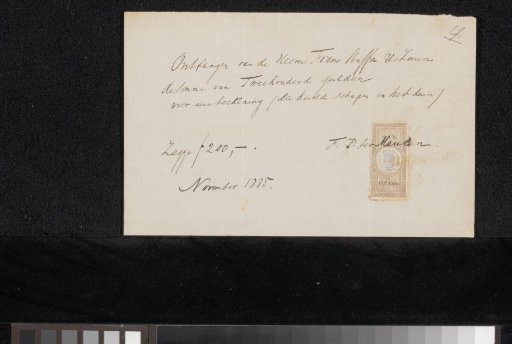 4
Ontfangen van de Heeren Frans Buffa & Zonen
de somme van Tweehonderd gulden
voor eene teekening (Een kudde schapen in het duin)
Zegge ƒ 200,-.
F. P. ter Meulen.
November 1885.